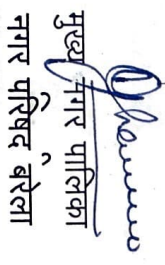 मुख्य नगर पालिका
नगर परिषद बरेला